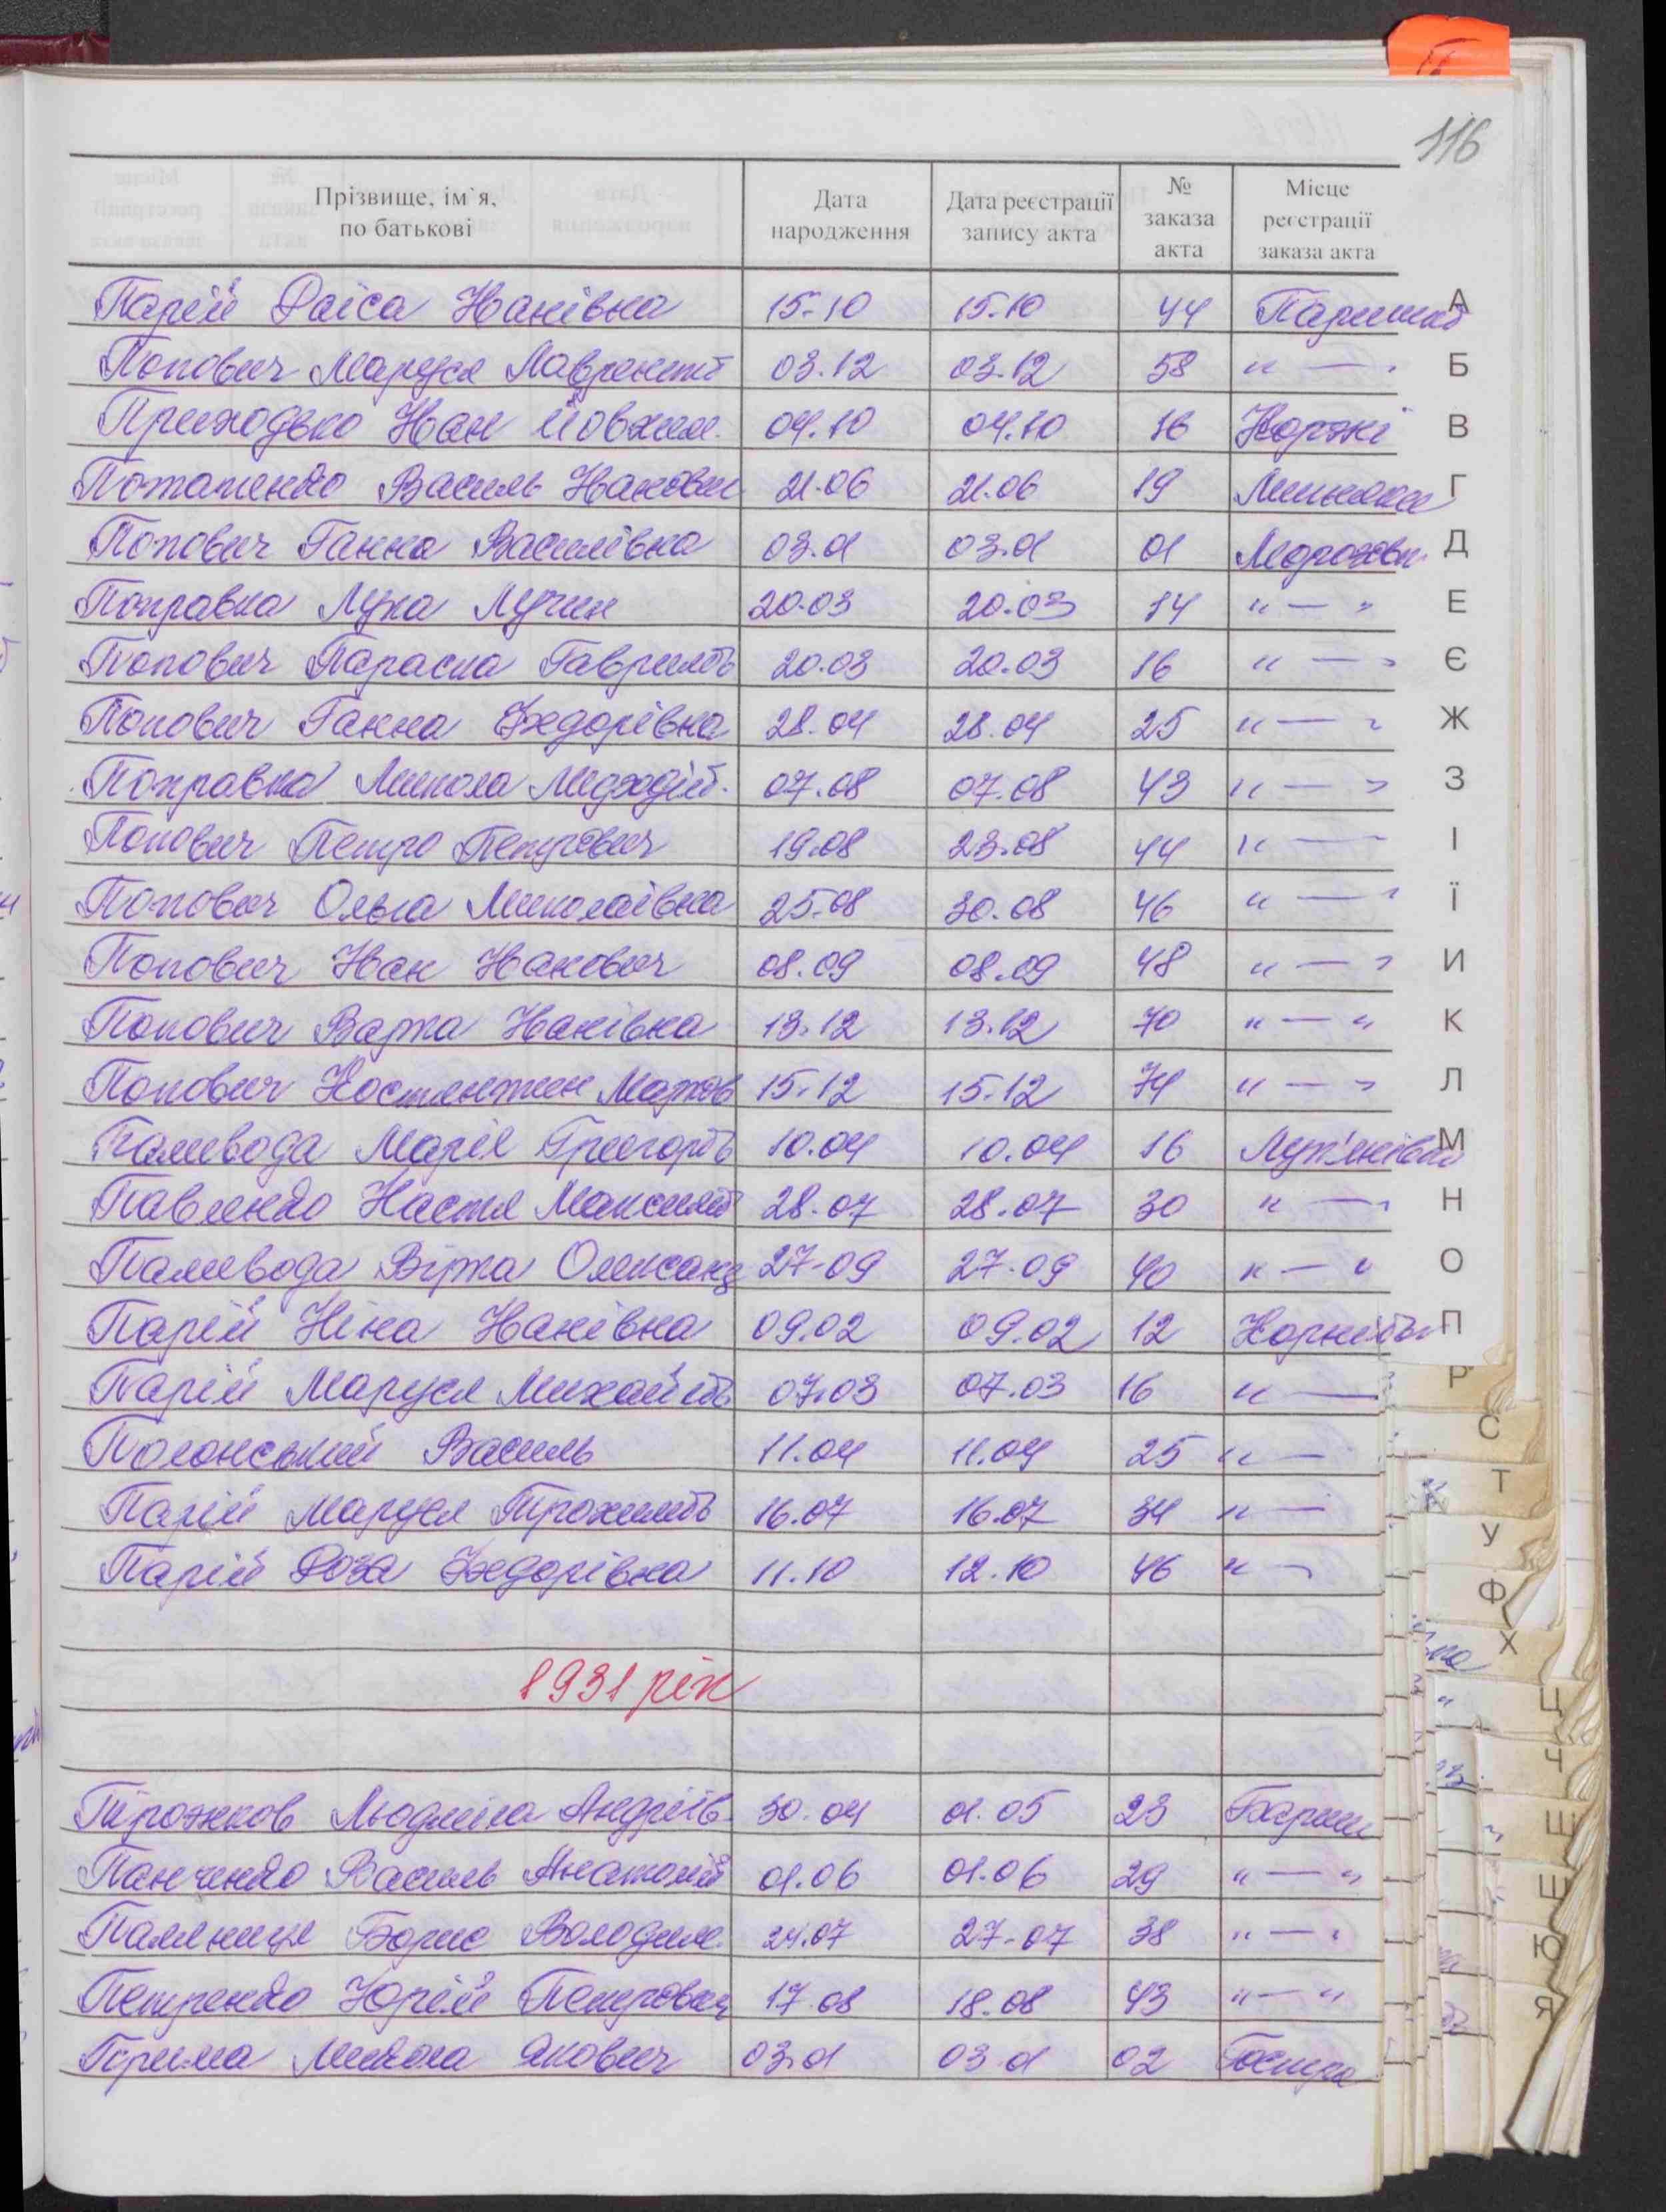 116
Прізвище, ім`я, по батькові Дата народження Дата реєстрації запису акта № заказа акта Місце реєстрації заказа акта
Парій Раіса Іванівна 15.10 15.10 44 Паришків
Попович Маруся Лаврентів 03.12 03.12 58 "—"
Приходько Іван Йовхим. 04.10 04.10 16 Коржі
Поташенко Василь Іванович 21.06 21.06 19
Попович Ганна Василівна 03.01 03.01 01 Морозівк.
Поправка Лука Лучин 20.03 20.03 14 "—"
Попович Параска Гаврилів 20.03 20.03 16 "—"
Попович Ганна Федорівна 28.04 28.04 25 "—"
Поправка Микола Медодій. 07.08 07.08 43 "—"
Попович Петро Петрович 19.08 23.08 44 "—
Попович Ольга Миколаівна 25.08 30.08 46 "—"
Попович Іван Іванович 08.09 08.09 48 "—"
Попович Варка Іванівна 13.12 13.12 70 "—"
Попович Костянтин Марков 15.12 15.12 74 "—"
Паливода Марія Григорів 10.04 10.04 16 Лук'янівка
Павленко Настя Максимів 28.07 28.07 30 "—"
Паливода Вірка Олександ 27.09 27.09 40 "—"
Парій Ніна Іванівна 09.02 09.02 12
Парій Маруся Михайлів 07.03 07.03 16 "—
Полонський Василь 11.04 11.04 25 "—
Парій Маруся Трохимів 16.07 16.07 34 "—
Парій Роза Федорівна 11.10 12.10 46 "—
1931 рік
Пірожков Людміла Андріів. 30.04 01.05 23 Бариш
Панченко Василь Анатолій 01.06 01.06 29 "—"
Паляниця Борис Володим. 24.07 27.07 38 "—"
Петренко Юрій Петрович 17.08 18.08 43 "—"
Микола Якович 03.01 03.01 02 Гостра
А
Б
В
Г
Д
Е
Є
Ж
З
І
Ї
И
К
Л
М
Н
О
П
Р
С
Т
У
Ф
Х
Ц
Ч
Ш
Щ
Ю
Я